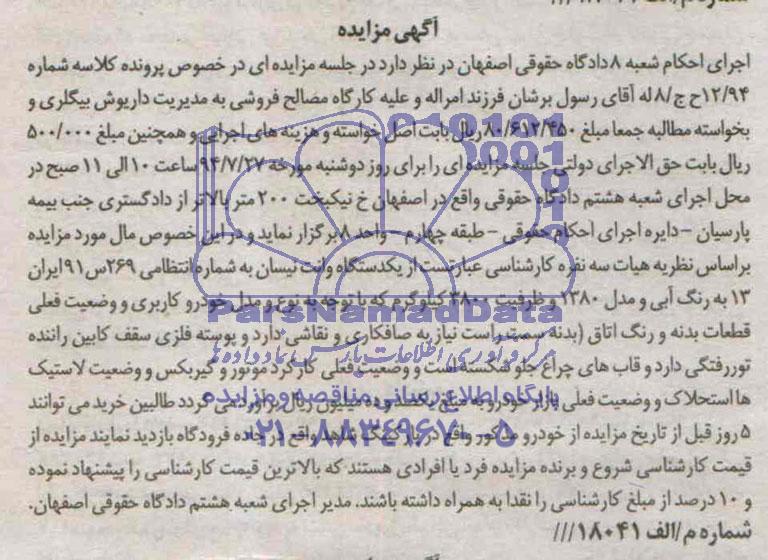 آگهی مزایده
اجرای احکام شعبه ۸ دادگاه حقوقی اصفهان در نظر دارد در جلسه مزایده ای در خصوص پرونده کلاسه شماره
۱۲/۹۴ح ج/۸ له آقای رسول برشان فرزند امراله و علیه کارگاه مصالح فروشی به مدیریت داریوش بیگلری و
بخواسته مطالبه جمعا مبلغ ۸۰/۶۱۲/۴۵۰ ریال بابت اصل خواسته و هزینه های اجرایی و همچنین مبلغ ۵۰۰/۰۰۰
ریال بابت حق الاجرای دولتی جلسه مزایده ای را برای روز دوشنبه مورخه ۹۴/۷/۲۷ ساعت ۱۰ الی ۱۱ صبح در
محل اجرای شعبه هشتم دادگاه حقوقی واقع در اصفهان خ نیکبخت ۲۰۰ متر بالاتر از دادگستری جنب بیمه
پارسیان - دایره اجرای احکام حقوقی - طبقه چهارم - واحد ۸ برگزار نماید و در این خصوص مال مورد مزایده
براساس نظریه هیات سه نفره کارشناسی عبارتست از یکدستگاه وانت نیسان به شماره انتظامی ۲۶۹س۹۱ ایران
۱۳ به رنگ آبی و مدل ۱۳۸۰ و ظرفیت ۲۸۰۰ کیلوگرم که با توجه به نوع و مدل خودرو کاربری و وضعیت فعلی
قطعات بدنه و رنگ اتاق (بدنه سمت راست نیاز به صافکاری و نقاشی دارد و پوسته فلزی سقف کابین راننده
توررفتگی دارد و قاب های چراغ جلو شکسته است و وضعیت فعلی کارکرد موتور و گیربکس و وضعیت لاستیک
ها استحلاک و وضعیت فعلی بازار خودرو به مبلغ یکصد و ده میلیون ریال برآورد می گردد طالبین خرید می توانند
۵ روز قبل از تاریخ مزایده از خودرو مذکور واقع در پارکینگ شاهد واقع در جاده فرودگاه بازدید نمایند مزایده از
قیمت کارشناسی شروع و برنده مزایده فرد یا افرادی هستند که بالاترین قیمت کارشناسی را پیشنهاد نموده
و ۱۰ درصد از مبلغ کارشناسی را نقدا به همراه داشته باشند. مدیر اجرای شعبه هشتم دادگاه حقوقی اصفهان.
شماره م/الف ۱۸۰۴۱///
ParsNamadData
مرکز فرآوری اطلاعات پارس نماد داده ها
پایگاه اطلاع رسانی مناقصه و مزایده
۰۲۱-۸۸۳۴۹۶۷۰-۵